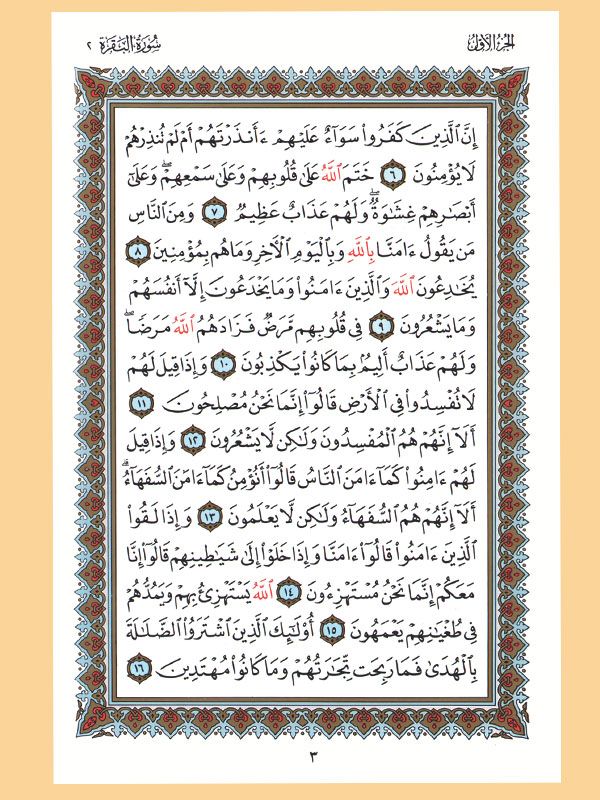 الجزء الأول
سورة البقرة ٢
إِنَّ ٱلَّذِينَ كَفَرُوا۟ سَوَآءٌ عَلَيْهِمْ ءَأَنذَرْتَهُمْ أَمْ لَمْ تُنذِرْهُمْ
لَا يُؤْمِنُونَ ٦ خَتَمَ ٱللَّهُ عَلَىٰ قُلُوبِهِمْ وَعَلَىٰ سَمْعِهِمْ ۖ وَعَلَىٰٓ
أَبْصَـٰرِهِمْ غِشَـٰوَةٌ ۖ وَلَهُمْ عَذَابٌ عَظِيمٌ ٧ وَمِنَ ٱلنَّاسِ
مَن يَقُولُ ءَامَنَّا بِٱللَّهِ وَبِٱلْيَوْمِ ٱلْـَٔاخِرِ وَمَا هُم بِمُؤْمِنِينَ ٨
يُخَـٰدِعُونَ ٱللَّهَ وَٱلَّذِينَ ءَامَنُوا۟ وَمَا يَخْدَعُونَ إِلَّآ أَنفُسَهُمْ
وَمَا يَشْعُرُونَ ٩ فِى قُلُوبِهِم مَّرَضٌ فَزَادَهُمُ ٱللَّهُ مَرَضًا ۖ
وَلَهُمْ عَذَابٌ أَلِيمٌۢ بِمَا كَانُوا۟ يَكْذِبُونَ ١٠ وَإِذَا قِيلَ لَهُمْ
لَا تُفْسِدُوا۟ فِى ٱلْأَرْضِ قَالُوٓا۟ إِنَّمَا نَحْنُ مُصْلِحُونَ ١١
أَلَآ إِنَّهُمْ هُمُ ٱلْمُفْسِدُونَ وَلَـٰكِن لَّا يَشْعُرُونَ ١٢ وَإِذَا قِيلَ
لَهُمْ ءَامِنُوا۟ كَمَآ ءَامَنَ ٱلنَّاسُ قَالُوٓا۟ أَنُؤْمِنُ كَمَآ ءَامَنَ ٱلسُّفَهَآءُ ۗ
أَلَآ إِنَّهُمْ هُمُ ٱلسُّفَهَآءُ وَلَـٰكِن لَّا يَعْلَمُونَ ١٣ وَإِذَا لَقُوا۟
ٱلَّذِينَ ءَامَنُوا۟ قَالُوٓا۟ ءَامَنَّا وَإِذَا خَلَوْا۟ إِلَىٰ شَيَـٰطِينِهِمْ قَالُوٓا۟ إِنَّا
مَعَكُمْ إِنَّمَا نَحْنُ مُسْتَهْزِءُونَ ١٤ ٱللَّهُ يَسْتَهْزِئُ بِهِمْ وَيَمُدُّهُمْ
فِى طُغْيَـٰنِهِمْ يَعْمَهُونَ ١٥ أُو۟لَـٰٓئِكَ ٱلَّذِينَ ٱشْتَرَوُا۟ ٱلضَّلَـٰلَةَ
بِٱلْهُدَىٰ فَمَا رَبِحَت تِّجَـٰرَتُهُمْ وَمَا كَانُوا۟ مُهْتَدِينَ ١٦
٣